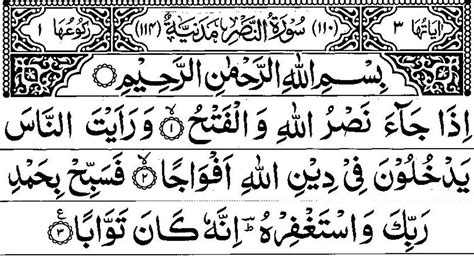 اٰيَاتُهَا ٣ (١١٠) سُوْرَةُ النَّصْرِ مَدَنِيَّةٌ (١١٤) رُكُوْعُهَا ١
بِسْمِ اللهِ الرَّحْمٰنِ الرَّحِيْمِ
اِذَا جَآءَ نَصْرُ اللهِ وَالْفَتْحُ ۙ﴿١﴾ وَرَاَيْتَ النَّاسَ
يَدْخُلُوْنَ فِيْ دِيْنِ اللهِ اَفْوَاجًا ۙ﴿٢﴾ فَسَبِّحْ بِحَمْدِ
رَبِّكَ وَاسْتَغْفِرْهُ ؕ اِنَّهٗ كَانَ تَوَّابًا ﴿٣﴾ ع